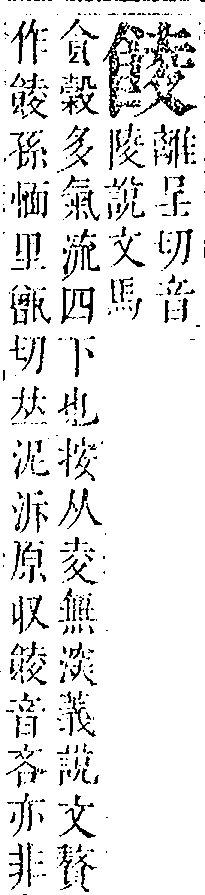 䬋
離呈切音
陵說文馬
食穀多氣流四下也按从夌無淡義說文贅
作䬋孫愐里甑切𠀤泥泝原収䬋音吝亦非